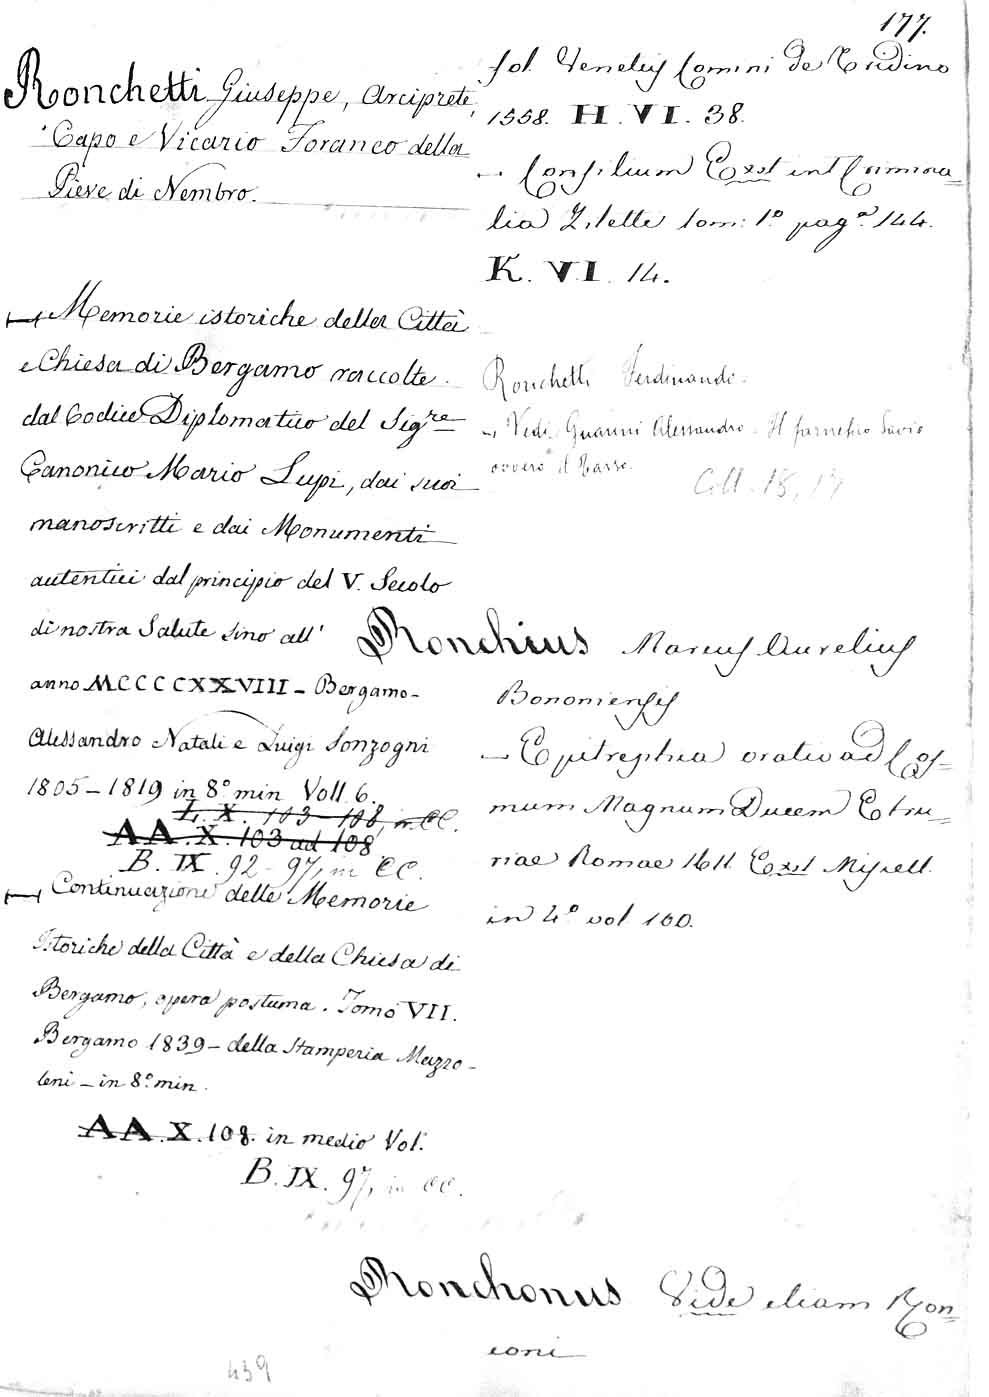 177.
Ronchetti Giuseppe, Arciprete,
Capo e Vicario Foraneo della
Pieve di Nembro.
Memorie istoriche della Città
e Chiesa di Bergamo raccolte
dal Codice Diplomatico del Sig.re
Canonico Mario Lupi, dai suoi
manoscritti e dai Monumenti
autentici dal principio del V. Secolo
di nostra Salute sino all'
anno MCCCCXXVIII - Bergamo -
Alessandro Natali e Luigi Sonzogni
1805-1819 in 8.° min Voll 6.
L. X. 103-108, in CC.
AA.X.103 ad 108
B. IX. 92-97, in CC.
Continuazione delle Memorie
Istoriche della Città e della Chiesa di
Bergamo, opera postuma. Tomo VII.
Bergamo 1839 - della Stamperia Mazzo-
leni - in 8.° min.
AA.X.108. in medio Vol.
B. IX. 97, in CC.
fol. Venetijs Comini de Tridino
1558. H. VI. 38.
- Consilium Exst int Crimina=
lia Ziletti tom: 1.° pag.a 144.
K. VI. 14.
Ronchetti Ferdinando.
- Vedi Guarini Alessandro - Il farnetico Savio
ovvero il Tasso.
Coll. 15, 17
Ronchius Marcus Aurelius
Bononiensis
- Epitrephia oratio ad Cos=
mum Magnum Ducem Etru=
riae Romae 1611. Exst Miscell.
in 4.° vol 100.
Ronchonus Vide etiam Ron=
cioni
439